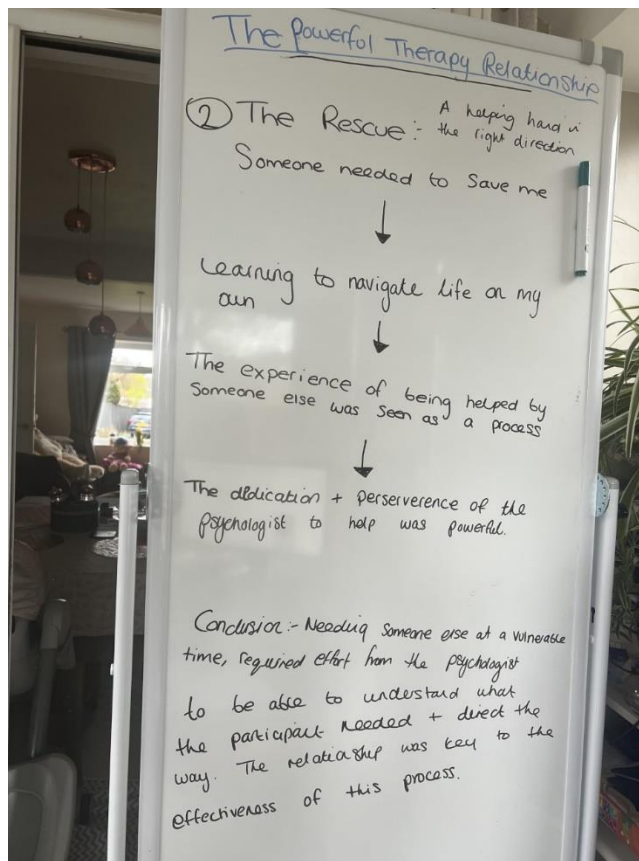 The Powerful Therapy Relationship
② The Rescue :- A helping hand in
the right direction
Someone needed to Save me
↓
Learning to navigate life on my
own
↓
The experience of being helped by
Someone else was seen as a process
↓
The dedication + perserverence of the
psychologist to help was powerful.
Conclusion :- Needing someone else at a vulnerable
time, required effort from the psychologist
to be able to understand what
the participant needed + direct the
way. The relationship was key to the
effectiveness of this process.